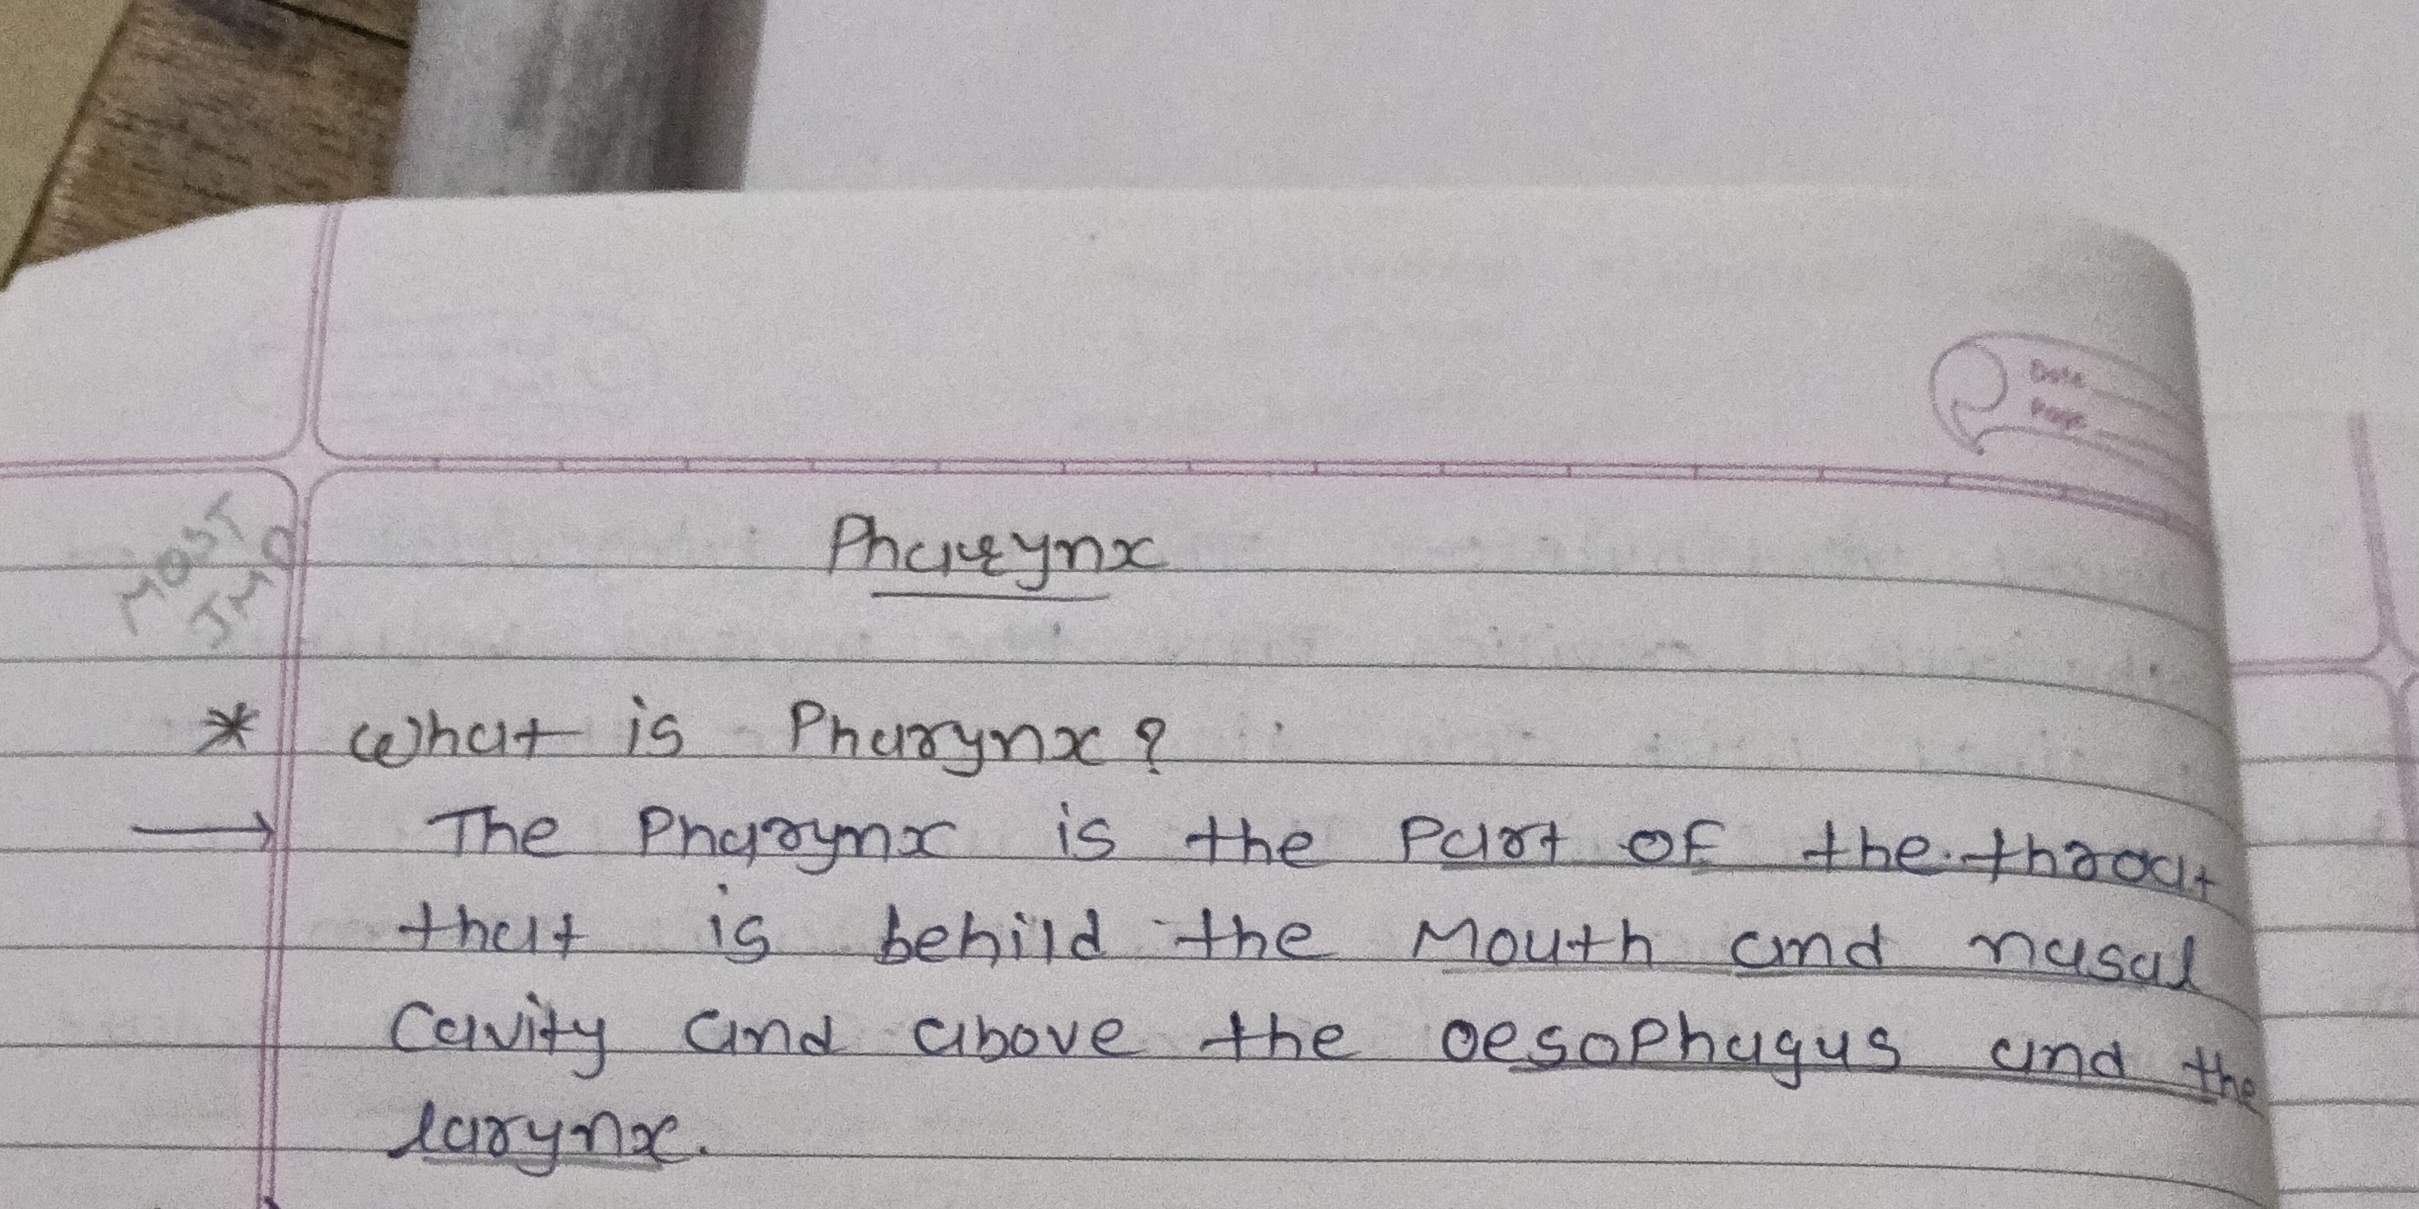 Date
Page
MOST
IMP
Pharynx
* What is Pharynx?
→ The Pharynx is the Part OF the throat
that is behild the Mouth and nasal
Cavity and above the oesophagus and the
larynx.